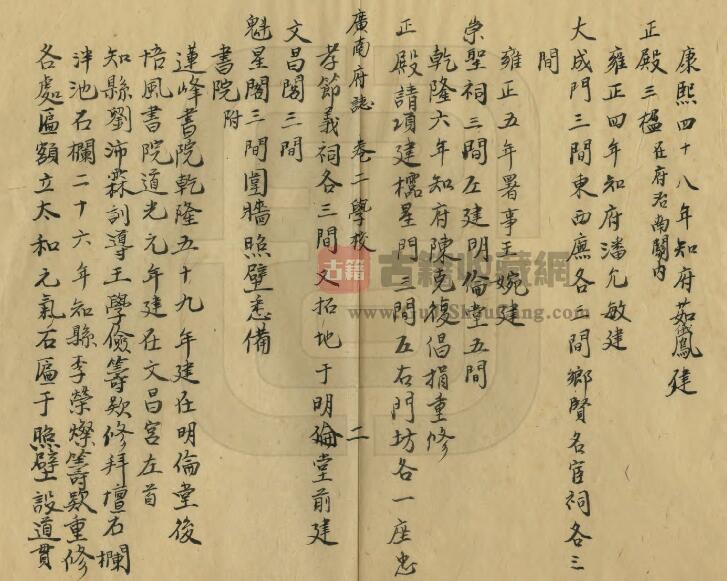 康熙四十八年知府茹儀鳳建
正殿三楹在府治南關內
雍正四年知府潘允敏建
大成門三間東西廡各三間鄉賢名宦祠各三
間
雍正五年署事王婉建
崇聖祠三間左建明倫堂五間
乾隆六年知府陳克復倡捐重修
正殿請項建櫺星門三間左右門坊各一座忠
廣南府誌 卷二學校 二
孝節義祠各三間又拓地于明倫堂前建
文昌閣三間
魁星閣三間圍牆照壁悉備
書院附
蓮峰書院乾隆五十九年建在明倫堂後
培風書院道光元年建在文昌宮左首
知縣劉沛霖訓導王學儉籌欵修拜壇石欄
泮池石欄二十六年知縣李榮燦籌欵重修
各處匾額立太和元氣石匾于照壁設道貫
古籍 古籍收藏網